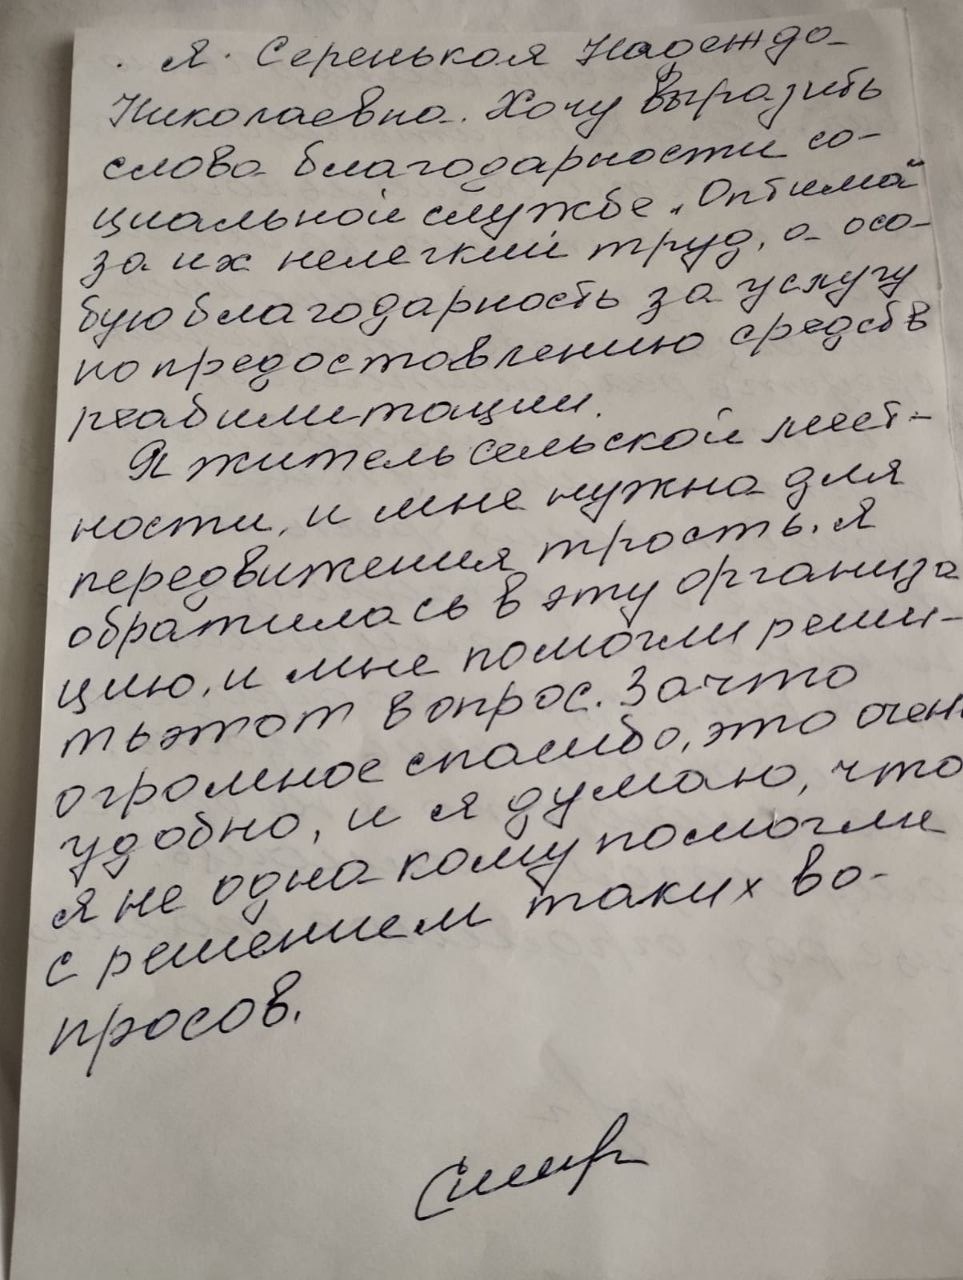 Я. Серенькая Надежда
Николаевна. Хочу выразить
слова благодарности со-
циальной службе „Оптима"
за их нелегкий труд, а осо-
бую благодарность за услугу
по предоставлению средств
реабилитации.
Я житель сельской мест-
ности, и мне нужна для
передвижения трость. Я
обратилась в эту организа
цию, и мне помогли реши-
ть этот вопрос. За что
огромное спасибо, это очень
удобно, и я думаю, что
я не одна кому помогли
с решением таких во-
просов.